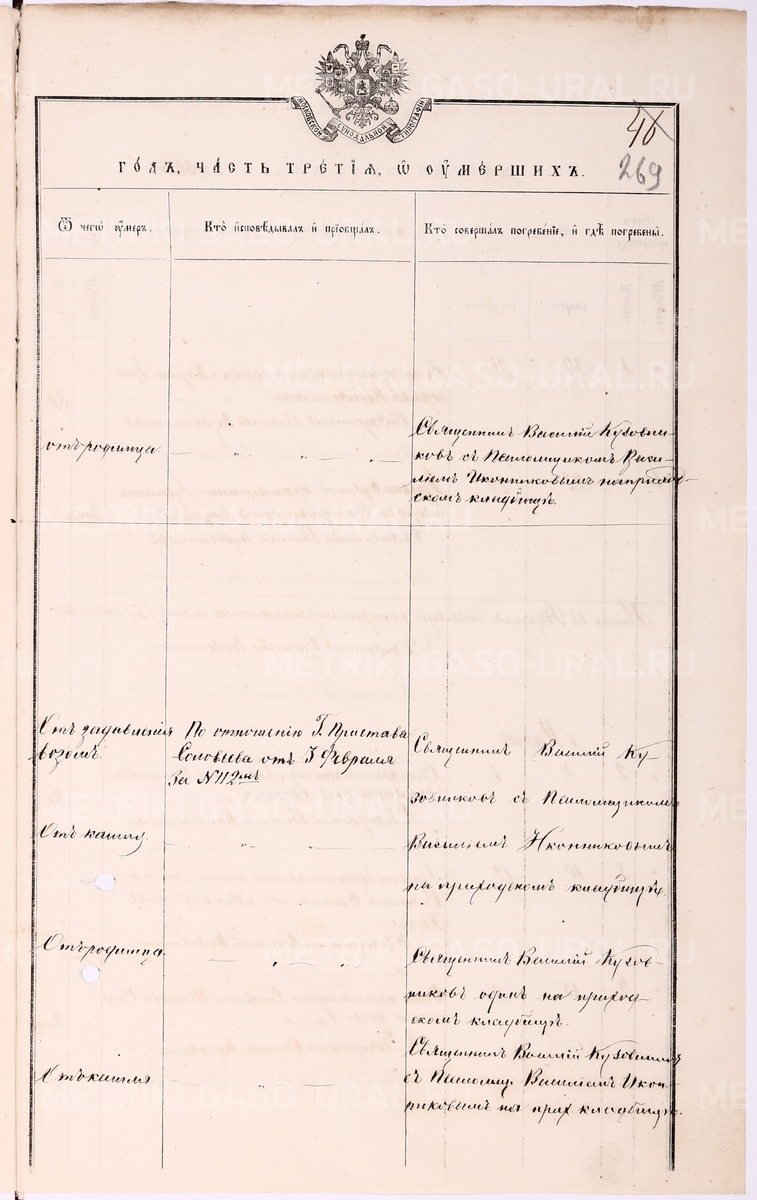 METRIKI.GASO-URAL.RU
МОСКОВСКОЙ СѴНОДАЛЬНОЙ ТИПОГРАФІИ
46
269
ГО́ДЪ, ЧА́СТЬ ТРЕ́ТІЯ, Ѡ҆ ОУ҆МЕ́РШИХЪ.
Ѿ чегѡ̀ ᲂу҆́меръ.
Кто̀ и҆сповѣ́дывалъ и҆ прїѡбща́лъ.
Кто̀ соверша́лъ погребе́нїе, и҆ гдѣ̀ погребены̀.
отъ родимца
Священникъ Василій Кузовни-
ковъ съ Псаломщикомъ Васи-
ліемъ Иконниковымъ на приход-
скомъ кладбищѣ.
Отъ задавленія
возомъ.
По отношенію Г. Пристава
Соловьева от 3 Февраля
За № 112мъ
Священникъ Василій Ку-
зовниковъ съ Псаломщикомъ
Отъ кашля.
Василіемъ Иконниковымъ
на приходскомъ кладбищѣ.
Отъ родимца.
Священникъ Василій Кузов-
никовъ одинъ на приход-
скомъ кладбищѣ.
Отъ кашля
Священникъ Василій Кузовников
съ Псаломщ. Василіемъ Икон-
никовымъ на прих кладбищѣ.